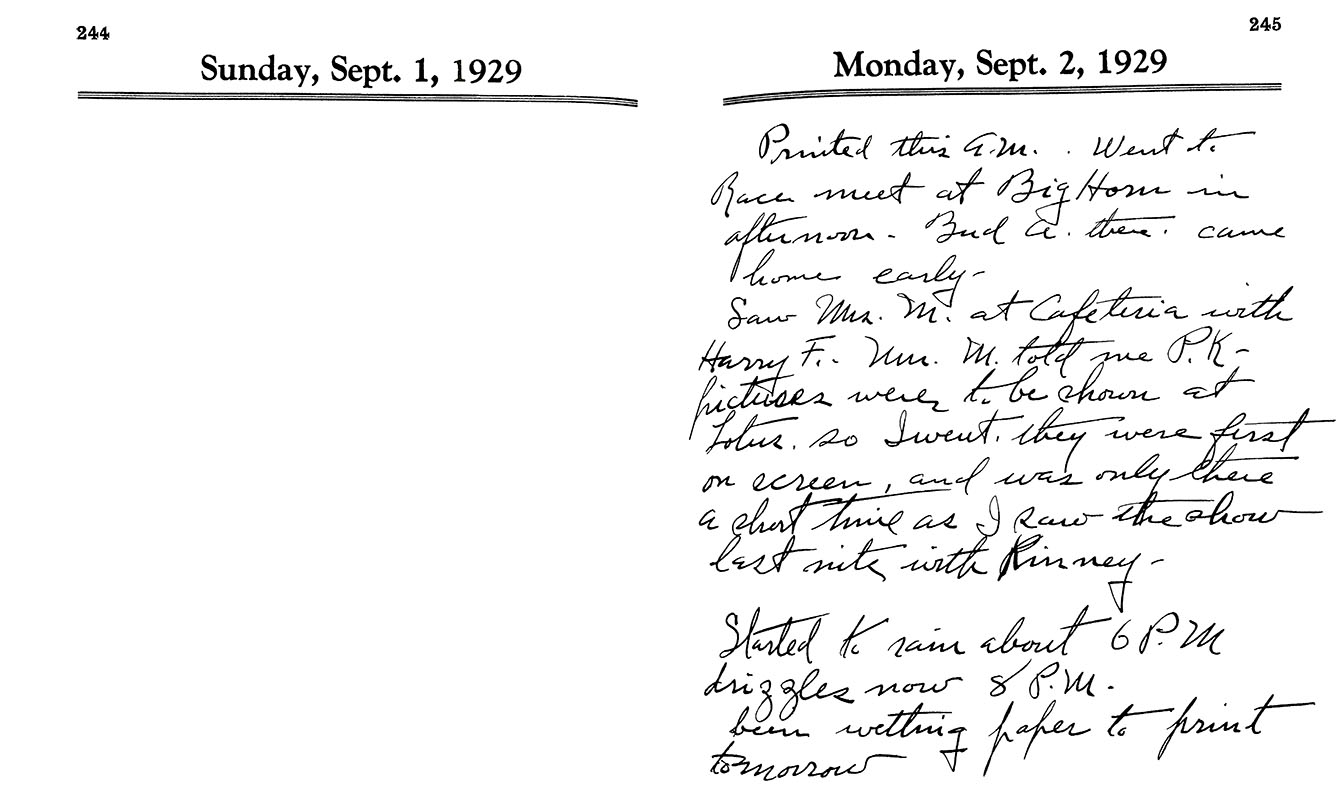 244
Sunday, Sept. 1, 1929
245
Monday, Sept. 2, 1929
Printed this A.M. . Went to
Race meet at Big Horn in
afternoon - Bud A. there. came
home early -
Saw Mrs. M. at Cafeteria with
Harry F. - Mrs. M. told me P.K -
pictures were to be shown at
Lotus. so I went. they were first
on screen, and was only there
a short time as I saw the show
last nite with Kinney -
Started to rain about 6 P.M
drizzles now 8 P.M.
been wetting paper to print
tomorrow